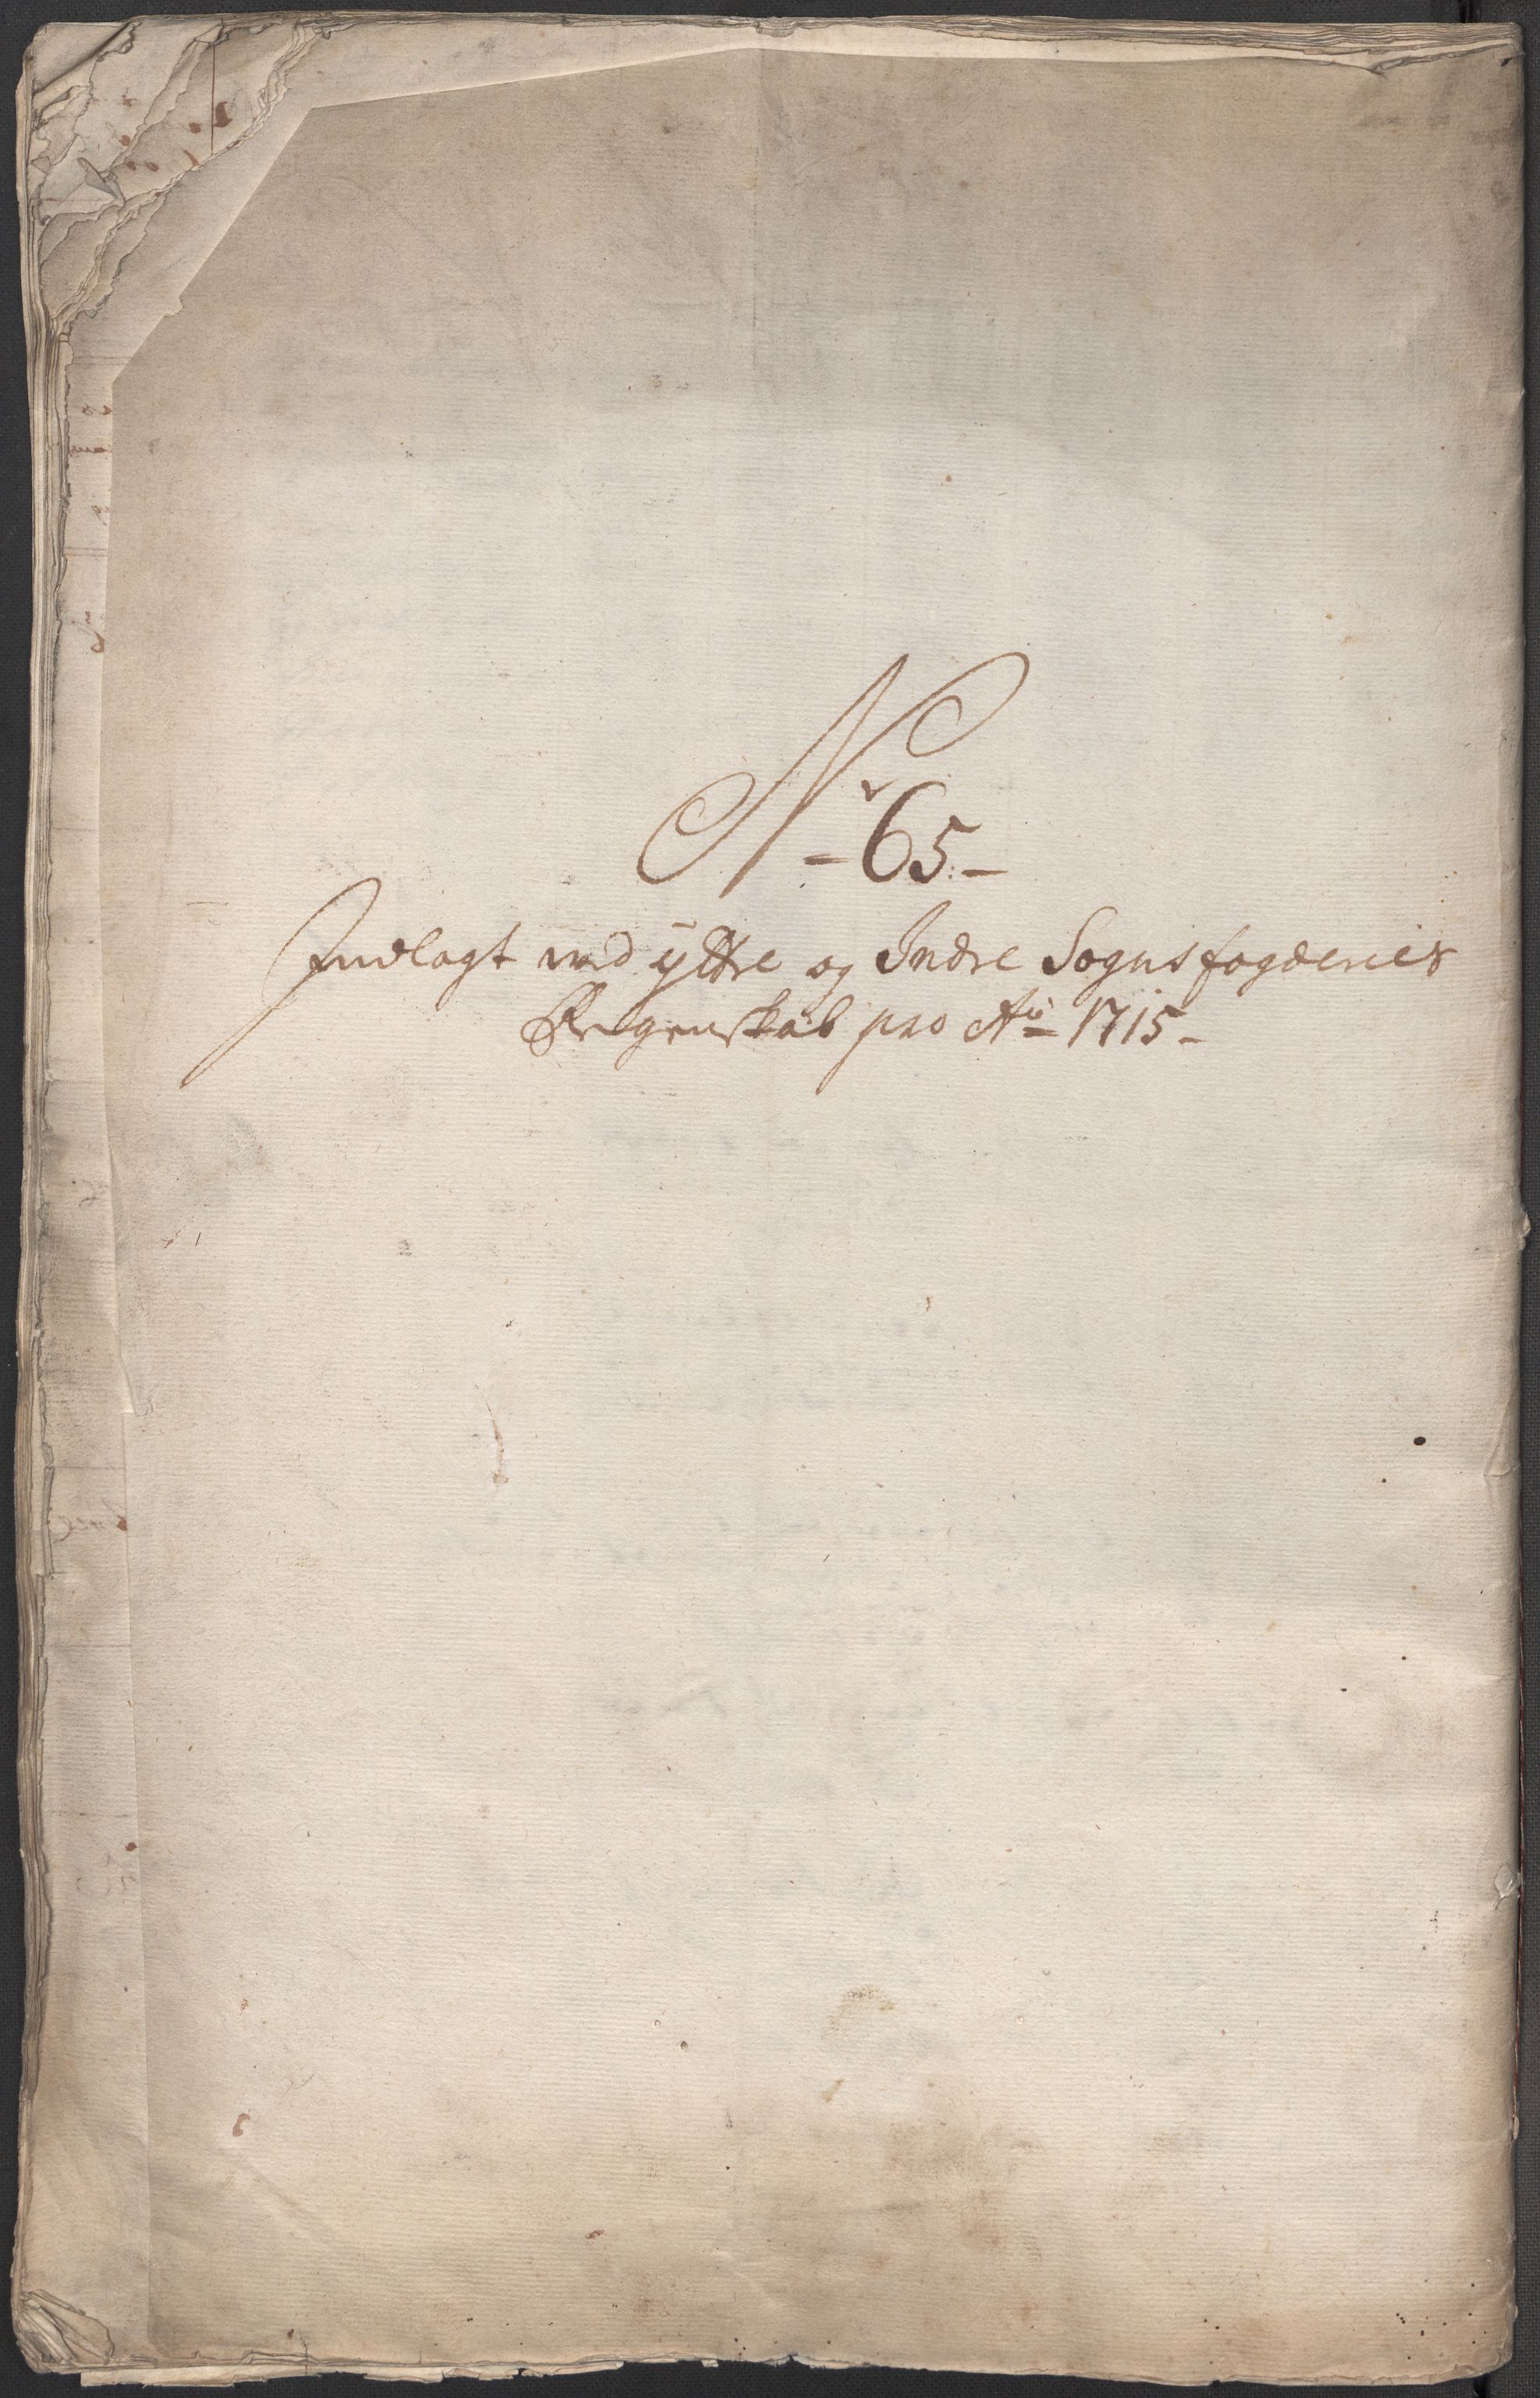 Nr 65-
Indlagt ved Ÿttre og Indre Sognsfogderies
Regenskab pro Ao 1715-